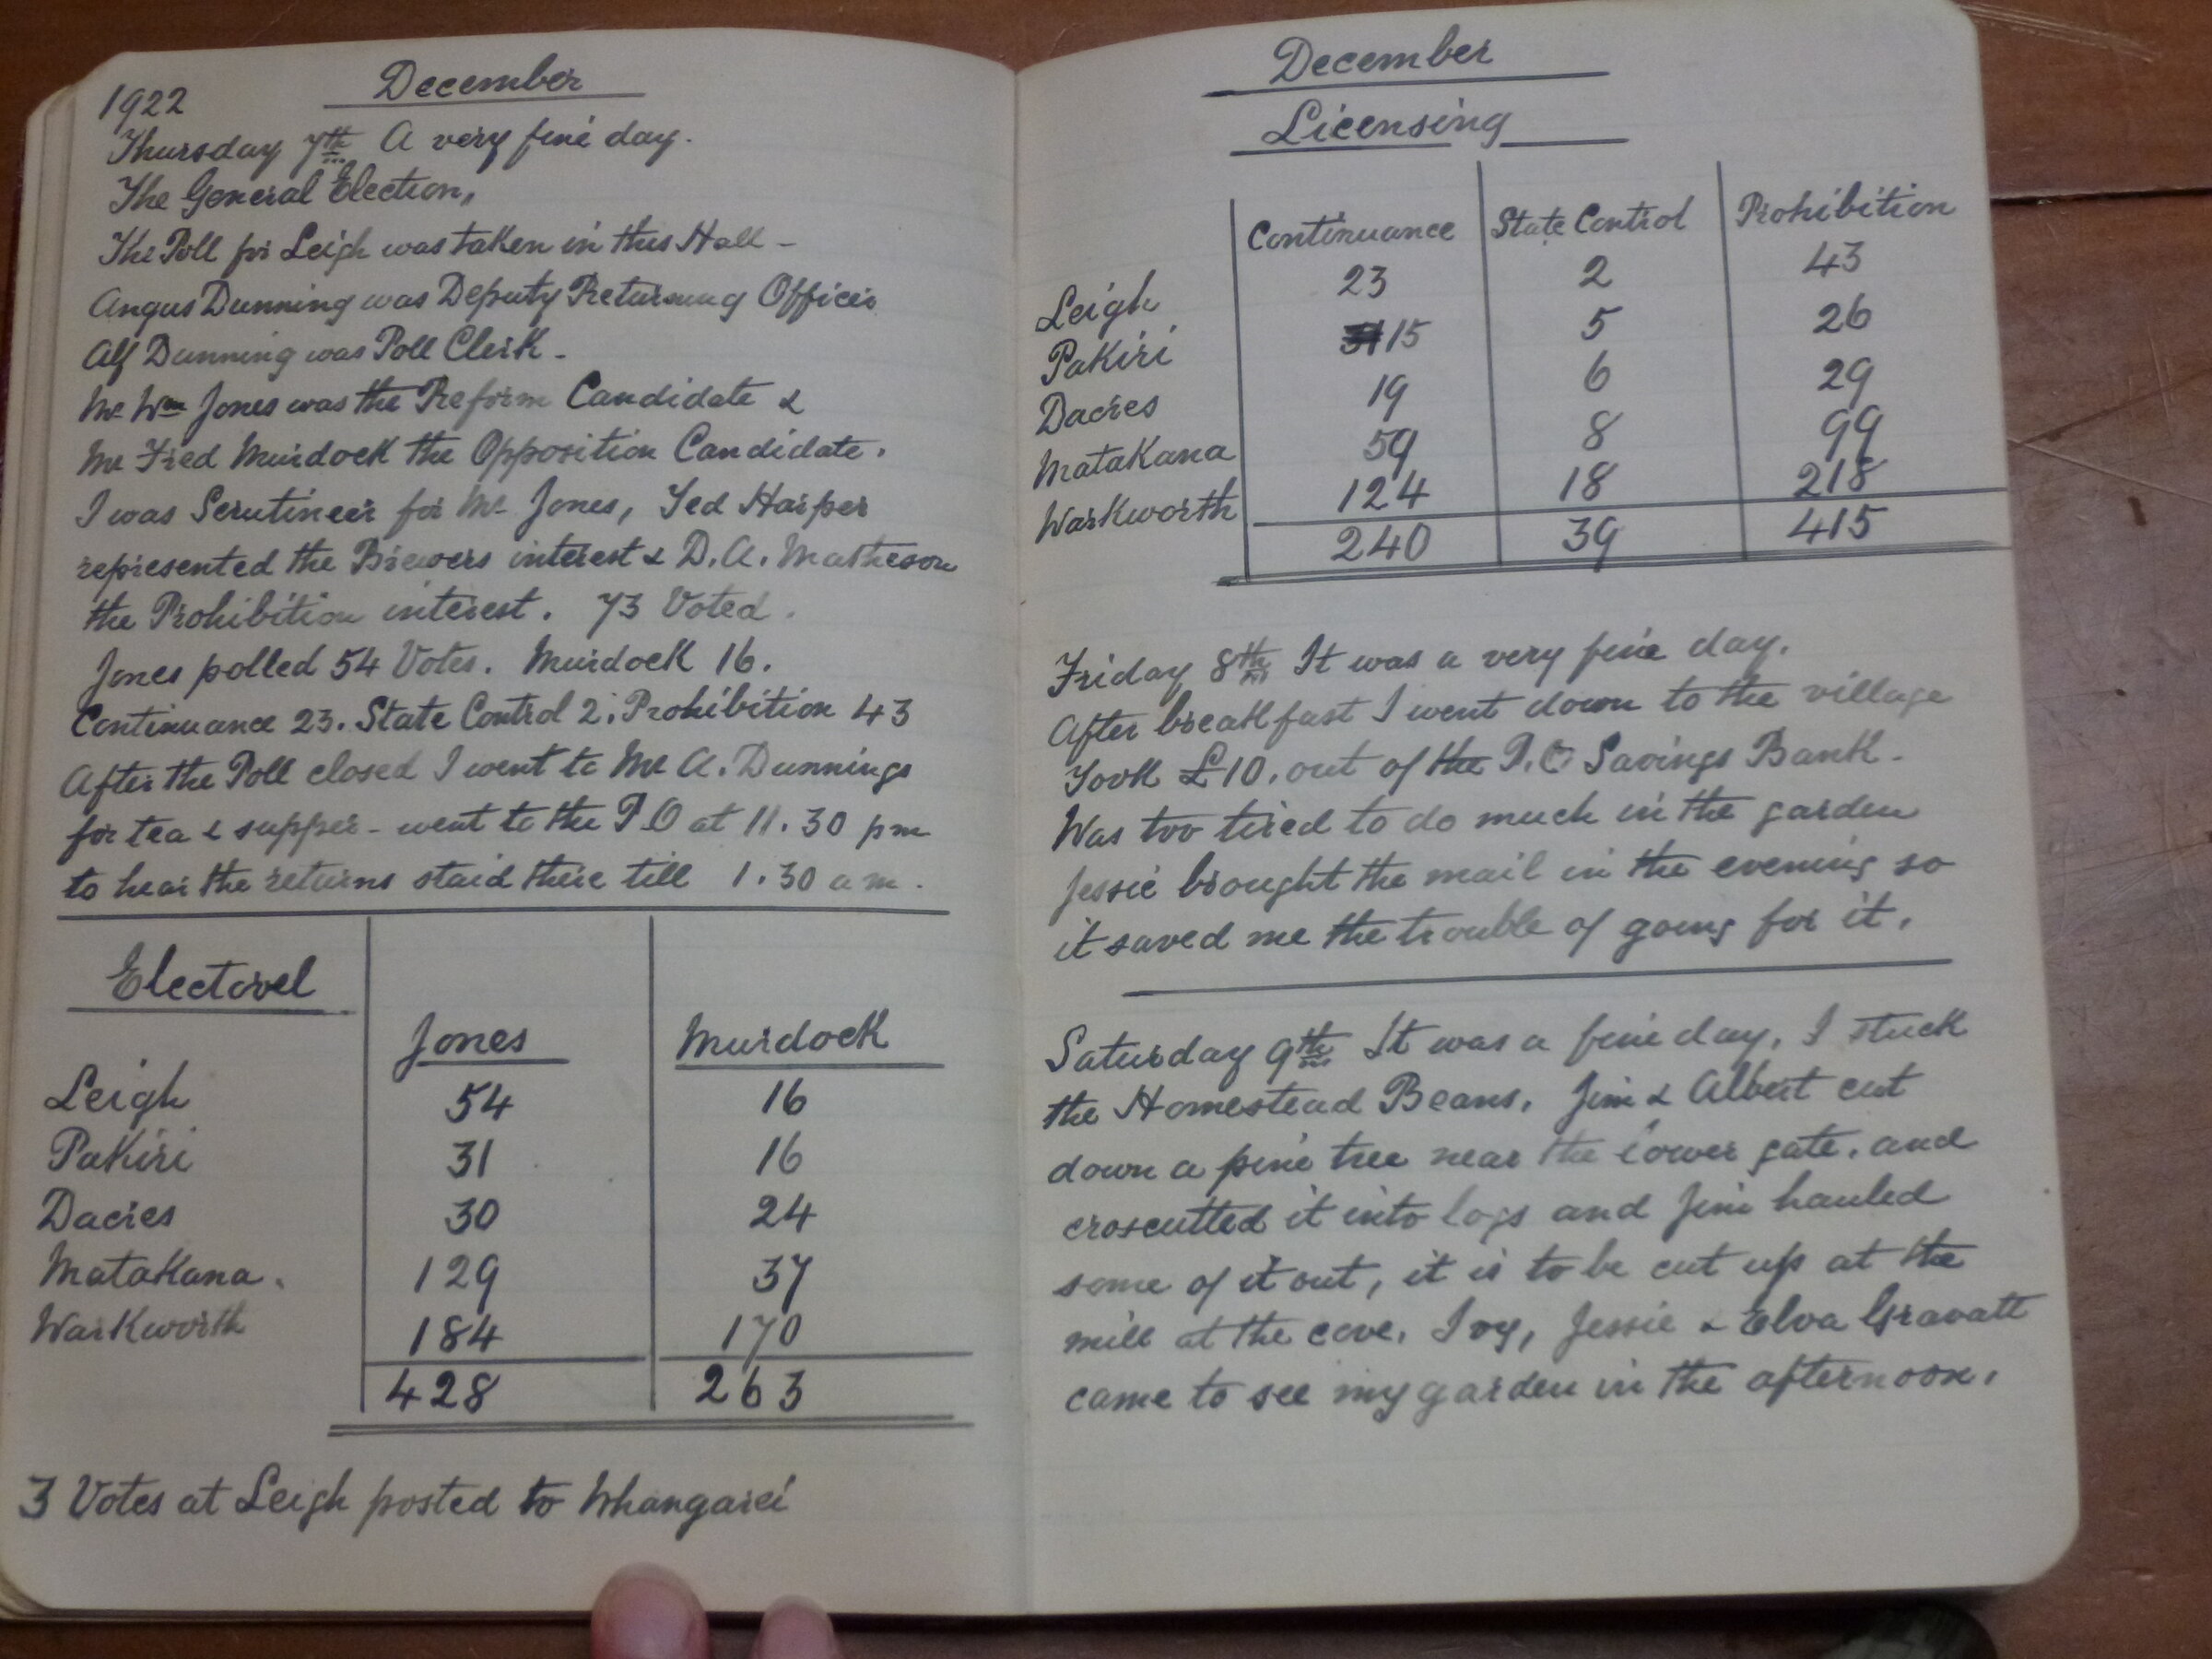 December
1922
Thursday 7th A very fine day.
The General Election,
The Poll for Leigh was taken in this Hall -
Angus Dunning was Deputy Returning Officer
Alf Dunning was Poll Clerk -
Mr Wm Jones was the Reform Candidate &
Mr Fred Murdock the Opposition Candidate.
I was Scrutineer for Mr Jones, Ted Harper
represented the Brewers interest & D. A. Matheson
the Prohibition interest. 73 Voted.
Jones polled 54 Votes. Murdock 16.
Continuance 23. State Control 2. Prohibition 43
After the Poll closed I went to Mr A. Dunnings
for tea & supper - went to the P.O at 11.30 pm
to hear the returns staid there till 1.30 am.
Electorel
Jones Murdock
Leigh 54 16
Pakiri 31 16
Dacres 30 24
Matakana. 129 37
Warkworth 184 170
428 263
3 Votes at Leigh posted to Whangarei
December
Licensing
Continuance State Control Prohibition
Leigh 23 2 43
Pakiri 31 15 5 26
Dacres 19 6 29
Matakana 59 8 99
Warkworth 124 18 218
240 39 415
Friday 8th It was a very fine day.
After breakfast I went down to the village
Took £10. out of the P.O Savings Bank.
Was too tired to do much in the garden
Jessie brought the mail in the evening so
it saved me the trouble of going for it.
Saturday 9th It was a fine day. I stuck
the Homestead Beans. Jim & Albert cut
down a pine tree near the lower gate. and
croscutted it into logs and Jim hauled
some of it out, it is to be cut up at the
mill at the cove. Ivy, Jessie & Elva Gravatt
came to see my garden in the afternoon.